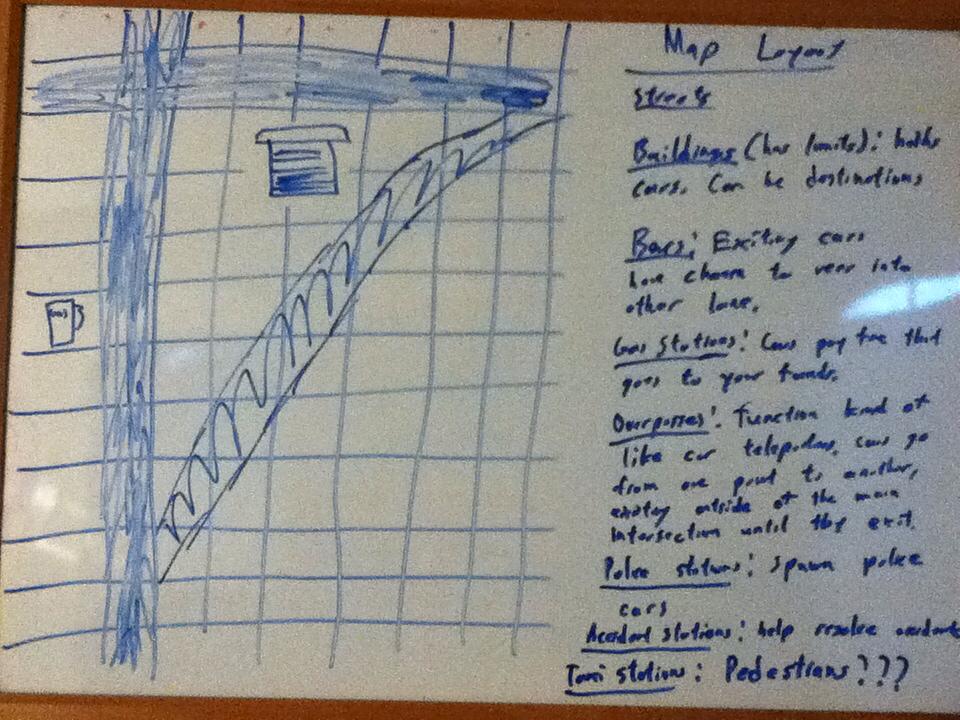 Map Layout
Streets
Buildings (has limits): holds
cars. Can be destinations
Bars: Exiting cars
have chance to veer into
other lane.
Gas Stations: Cars pay fee that
goes to your funds.
Overpasses: Function kind of
like car teleporters, cars go
from one point to another,
existing outside of the main
intersection until they exit.
Police stations: spawn police
cars
Accident stations: help resolve accidents
Taxi stations: Pedestrians???